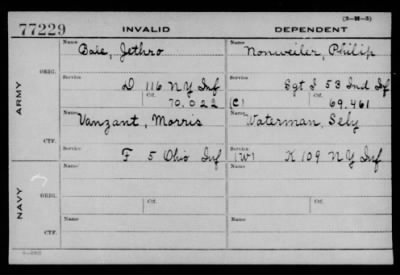 (3-M-5)
77229 INVALID DEPENDENT
Name Name
Baie, Jethro Nonweiler, Philip
ORIG.
Service Service
D 116 N Y Inf Sgt I 53 Ind Inf
ARMY
Ctf. 70.022 (C) Ctf. 69.461
Name Name
Vanzant, Morris Waterman, Sely
CTF.
Service Service
F 5 Ohio Inf (W) K 109 N Y Inf
Name Name
NAVY
ORIG.
Ctf. Ctf.
Name Name
CTF.